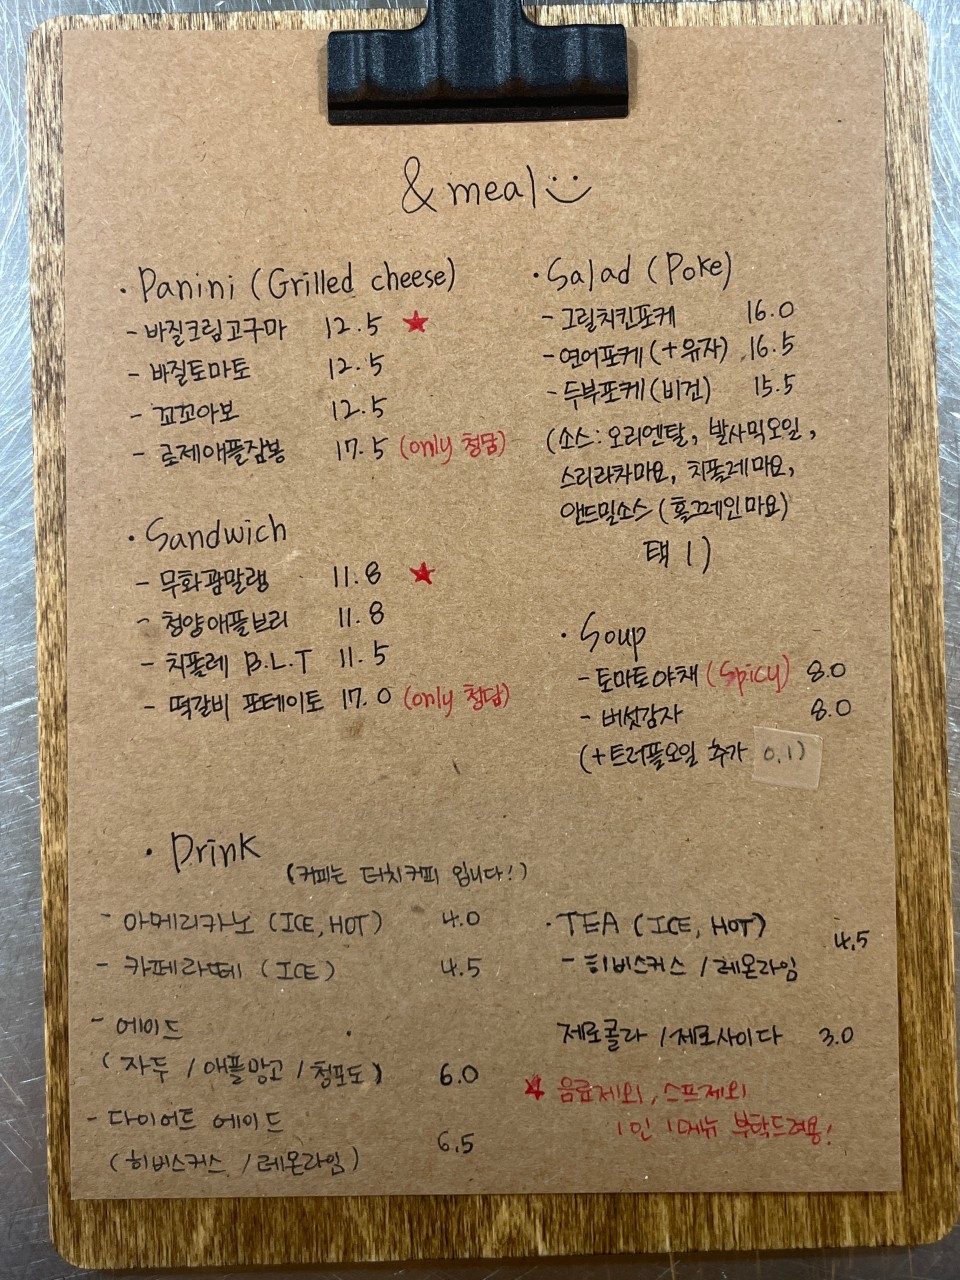 & meal
· Panini (Grilled cheese)
- 바질크림고구마 12.5 ★
- 바질토마토 12.5
- 꼬꼬아보 12.5
- 로제애플잠봉 17.5 (only 청담)
· Sandwich
- 무화광말랭 11.8 ★
- 청양애플브리 11.8
- 치폴레 B.L.T 11.5
- 떡갈비 포테이토 17.0 (only 청담)
· Salad (Poke)
- 그릴치킨포케 16.0
- 연어포케 (+유자) 16.5
- 두부포케 (비건) 15.5
(소스: 오리엔탈, 발사믹오일,
스리라차마요, 치폴레마요,
앤드밀소스 (홀그레인마요)
택 1)
· Soup
- 토마토야채 (Spicy) 8.0
- 버섯감자 8.0
(+트러플오일 추가 0.1)
· Drink
(커피는 터치커피 입니다!)
- 아메리카노 (ICE, HOT) 4.0
- 카페라떼 (ICE) 4.5
- 에이드
(자두 / 애플망고 / 청포도) 6.0
- 다이어트 에이드
(히비스커스 / 레몬라임) 6.5
· TEA (ICE, HOT) 4.5
- 히비스커스 / 레몬라임
제로콜라 / 제로사이다 3.0
★ 음료제외, 스프제외
1인 1메뉴 부탁드려용!